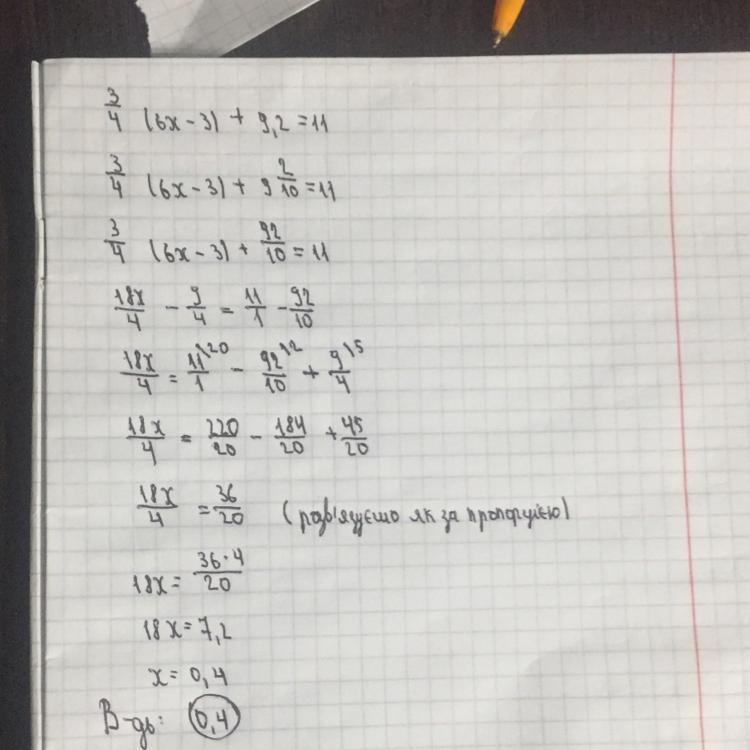 3/4 (6x - 3) + 9,2 = 11
3/4 (6x - 3) + 9 2/10 = 11
3/4 (6x - 3) + 92/10 = 11
18x/4 - 9/4 = 11/1 - 92/10
18x/4 = 11/1 \20 - 92/10 \2 + 9/4 \5
18x/4 = 220/20 - 184/20 + 45/20
18x/4 = 36/20 (розв'язуємо як за пропорцією)
18x = 36·4/20
18x = 7,2
x = 0,4
В-дь: 0,4